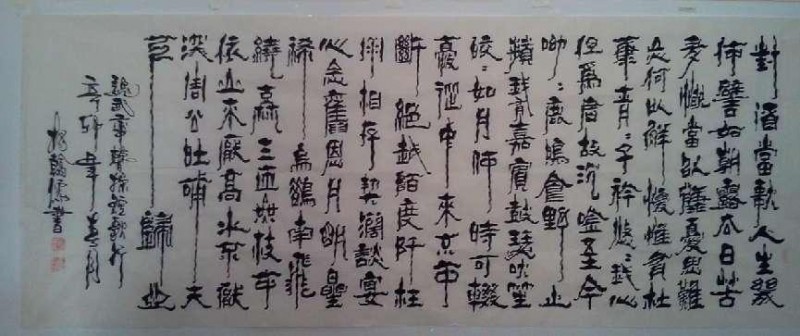 對酒當歌人生幾
何譬如朝露去日苦
多慨當以慷憂思難
忘何以解憂惟有杜
康青〻子衿悠〻我心
但為君故沉吟至今
呦〻鹿鳴食野之
蘋我有嘉賓鼓瑟吹笙
皎〻如月何時可輟
憂從中來不可
斷絕越陌度阡枉
用相存契闊談宴
心念舊恩月明星
稀烏鵲南飛
繞樹三匝無枝可
依山不厭高水不厭
深周公吐哺天
下歸心
魏武帝曹操短歌行
辛卯年春月
書